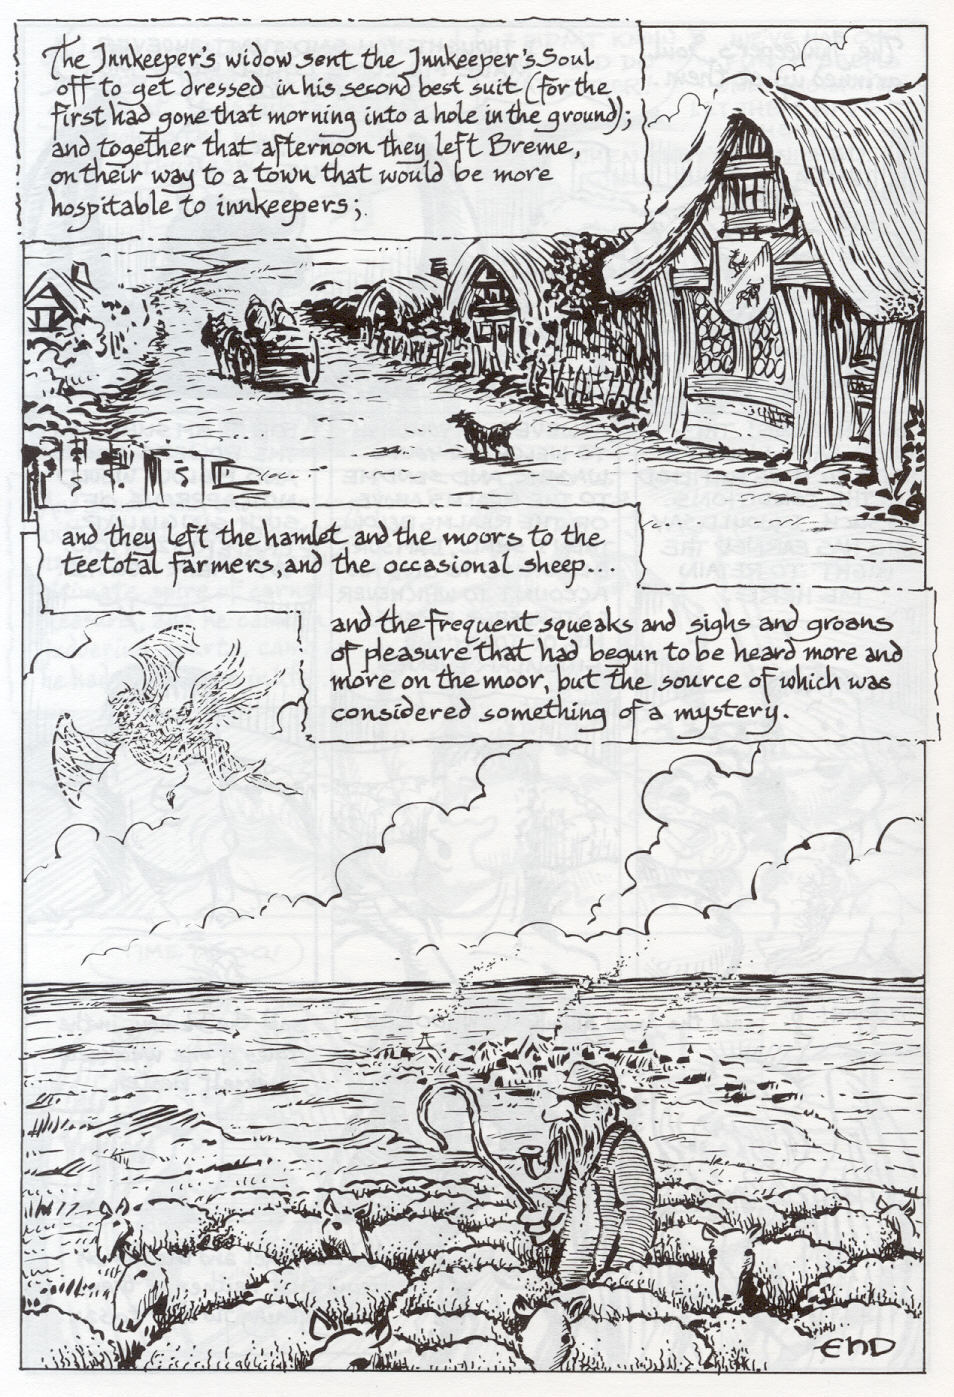 The Innkeeper's widow sent the Innkeeper's Soul
off to get dressed in his second best suit (for the
first had gone that morning into a hole in the ground);
and together that afternoon they left Breme,
on their way to a town that would be more
hospitable to innkeepers;
and they left the hamlet and the moors to the
teetotal farmers, and the occasional sheep...
and the frequent squeaks and sighs and groans
of pleasure that had begun to be heard more and
more on the moor, but the source of which was
considered something of a mystery.
END